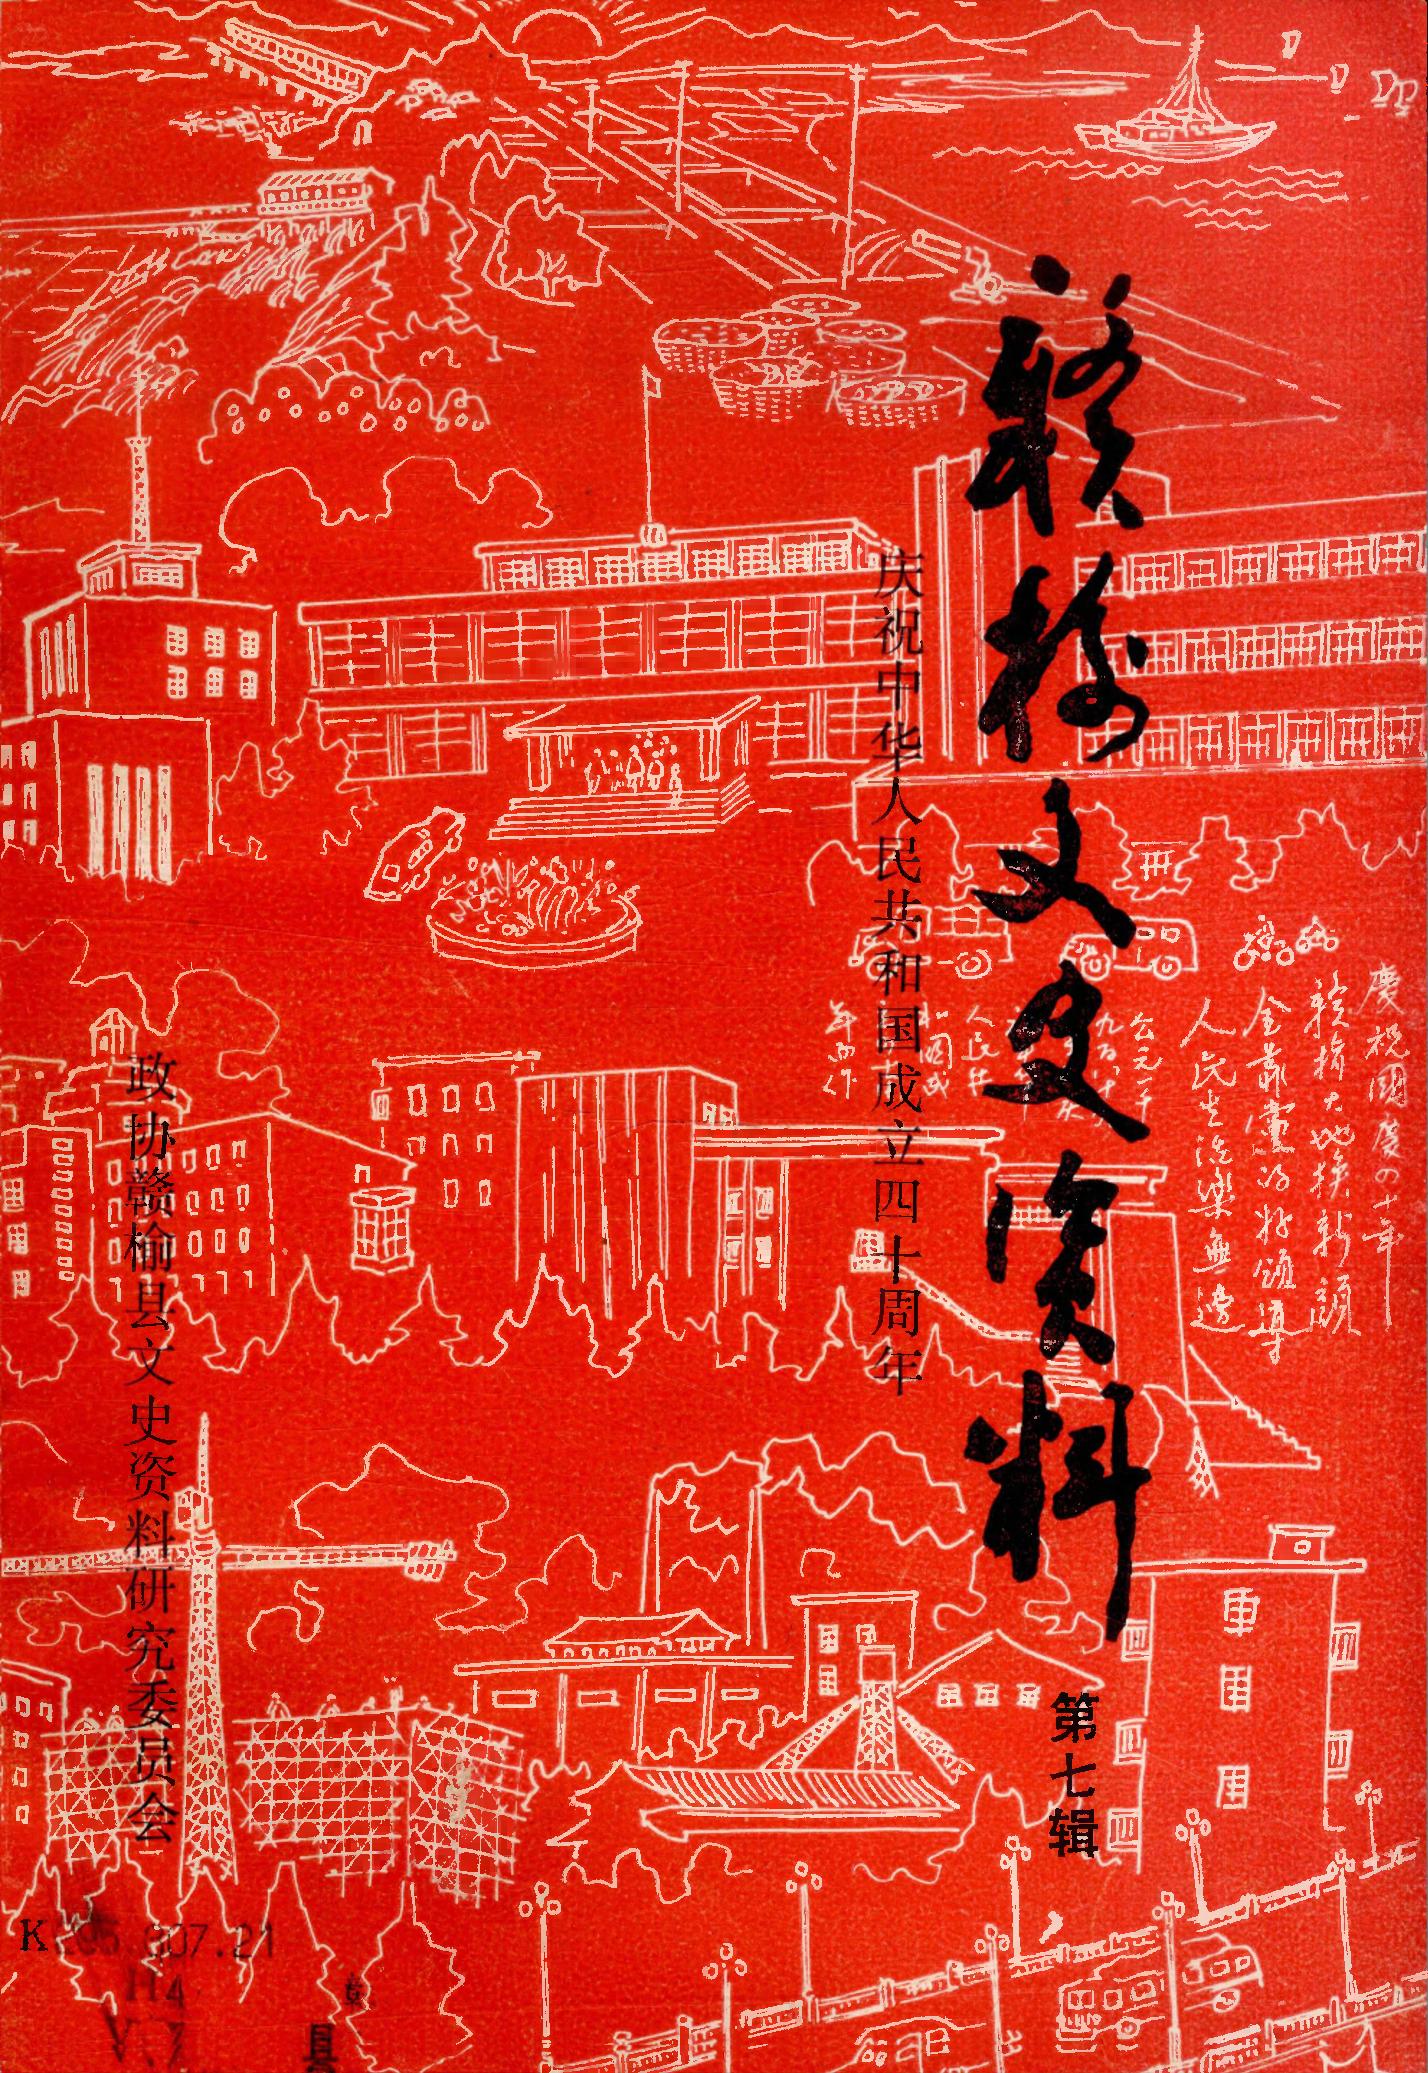 慶祝國慶四十年
赣榆大地換新顔
全靠黨的好領導
人民生活樂無邊
公元一千
赣榆文史资料
第七辑
庆祝中华人民共和国成立四十周年
政协赣榆县文史资料研究委员会
K 307.21
H4
V.7